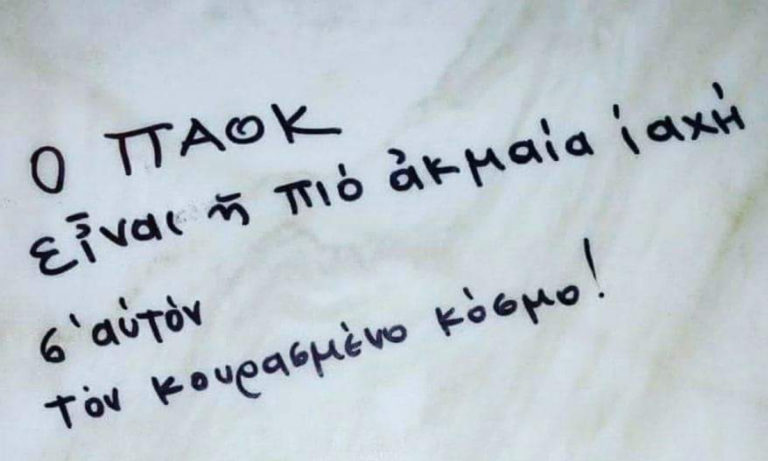 Ο ΠΑΟΚ
εἶναι ἡ πιό ἀκμαία ἰαχή
σ'αὐτόν
τόν κουρασμένο κόσμο!